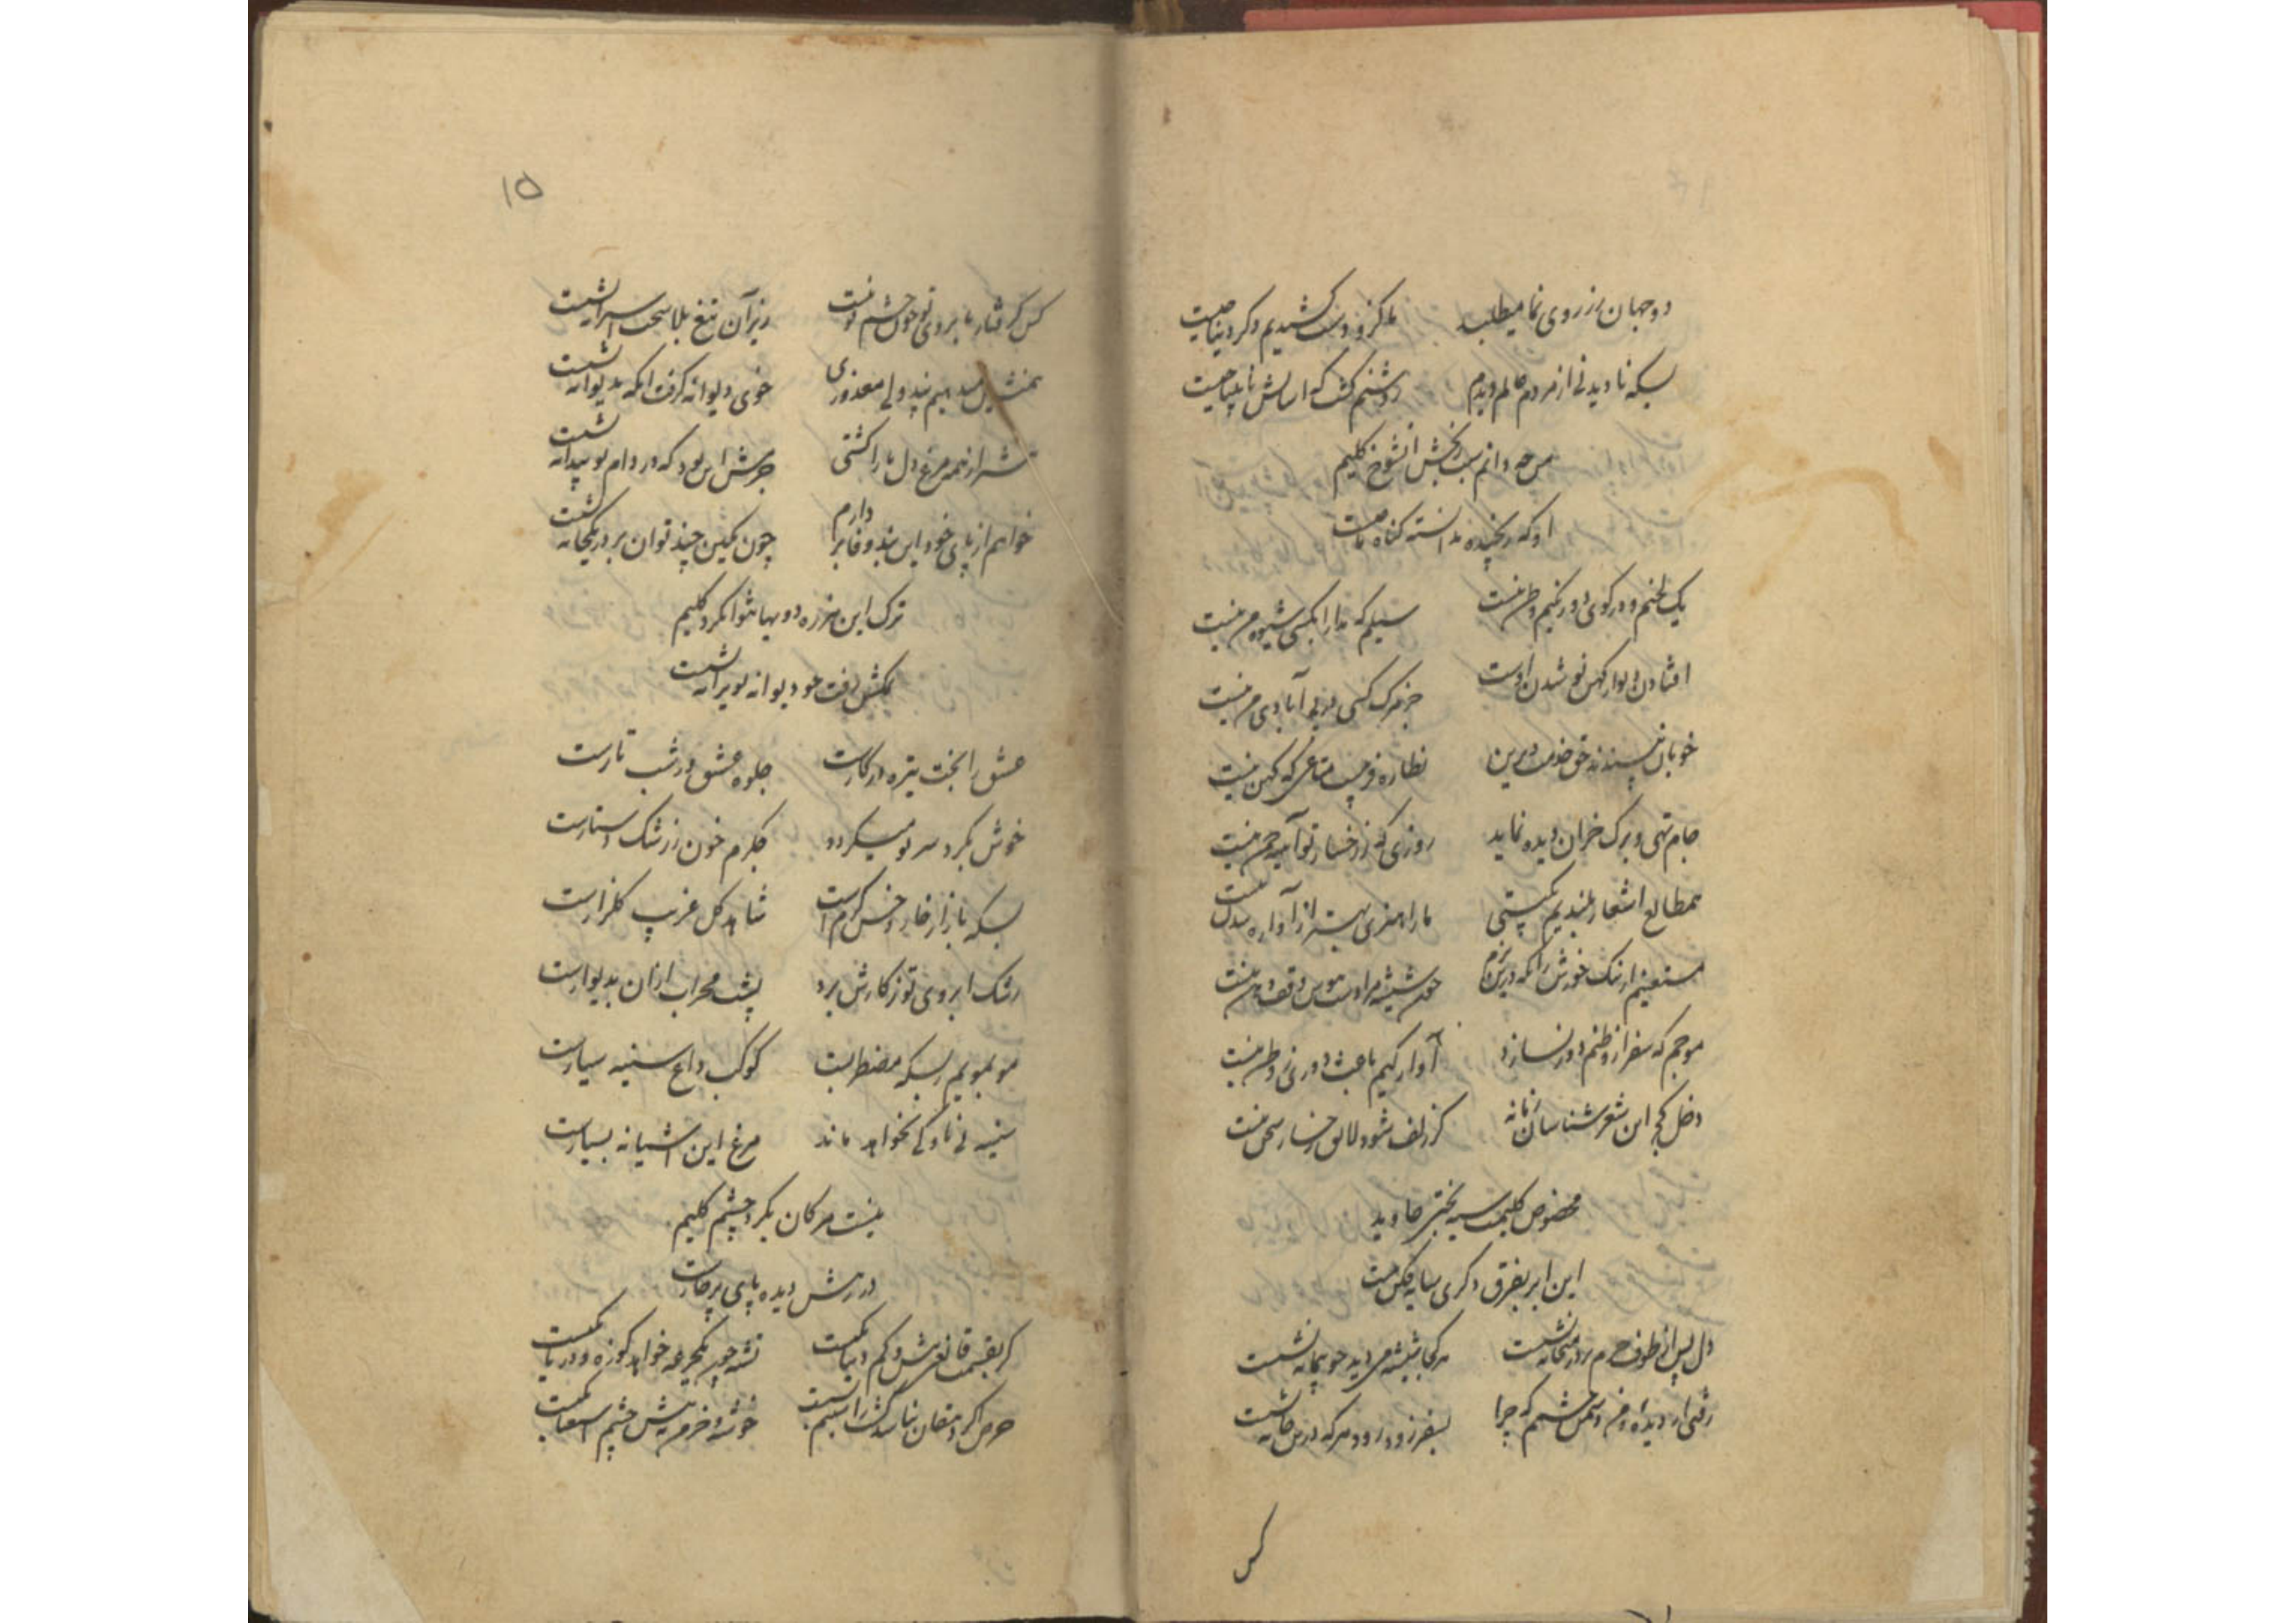 دو جهان رزروی نما میطلبد
ما کزو دست کشیدیم دگر دنیا چیست
بسکه نادیدنی از مردم عالم دیدم
روشنم گشت که آسایش نابینا چیست
من چه دانم سبب رنجش آن شوخ کلیم
او که رنجیده ندانسته گناه ما چیست
یک لختم و در کوی دورنگیم وطن نیست
سیلم که مدارا بکسی شیوه من نیست
افتادن دیوار کهن نو شدن اوست
جز مرگ کسی در پی آبادی من نیست
خوبان نپسندند حق خدمت دیرین
نظاره فریبست متاعی که کهن نیست
جام تهی و برگ خزان دیده نماید
روزی که ز رخسار تو آیینه چمن نیست
همطالع اشعار بلندیم بپستی
ما را هنری بهتر از آواره شدن نیست
مستغنیم از نشئه خورش زانکه درین بزم
چون شیشه مرا دست هوس وقف دهن نیست
موجم که سفر از وطنم دور نسازد
آوارگیم باعث دوری ز وطن نیست
دخل کج این شعر شناسان زمانه
گر زلف شود لایق رخسار سخن نیست
مخصوص کلیمست سیه بختی جاوید
این ابر بفرق دگری سایه فکن نیست
دل پس از طوف حرم بر در میخانه نشست
هر کجا شیشه می دید چو پیمانه نشست
رفتی از دیده و من دشمن چشمم که چرا
بسفر زود رود هر که درین خانه نشست
کس
۱۵
کس گرفتار بابروی تو چون چشم تو نیست
زیر آن تیغ بلا سخت اسیرانه نشست
همنشین میدهیم پند ولی معذوری
خوی دیوانه گرفت آنکه بدیوانه نشست
تو شرر از همه مرغ دل ما را کشتی
جرمش این بود که در دام تو بیدانه نشست
خواهم از پای خود این بند وفا بردارم
چون نگین چند توان بر در یکخانه نشست
ترک این مزرعه دو بها نتوان کرد کلیم
کمتش رفت چو دیوانه بویرانه نشست
عشق را بخت تیره در کارست
جلوه عشق در شب تارست
خوش بگرد سر تو میگردد
جگرم خون ز رشک دستارست
بسکه بازار خار و خس گرم است
شاهد گل غریب گلزارست
رشک ابروی تو ز کارش برد
پشت محراب از آن بدیوارست
مو بمویم ز بسکه مضطربست
کوکب داغ سینه سیارست
سینه بی ناوکی نخواهد ماند
مرغ این آشیانه بسیارست
نیست مژگان بگرد چشم کلیم
در رهش دیده پای پر خارست
گر بقسمت قانعی بیش و کم دنیا یکیست
تشنه چون یکجرعه خواهد کوزه و دریا یکیست
حرص گر دهقان نباشد گشت را سیم
خوشه و خرمن بپیش چشم استغنا یکیست